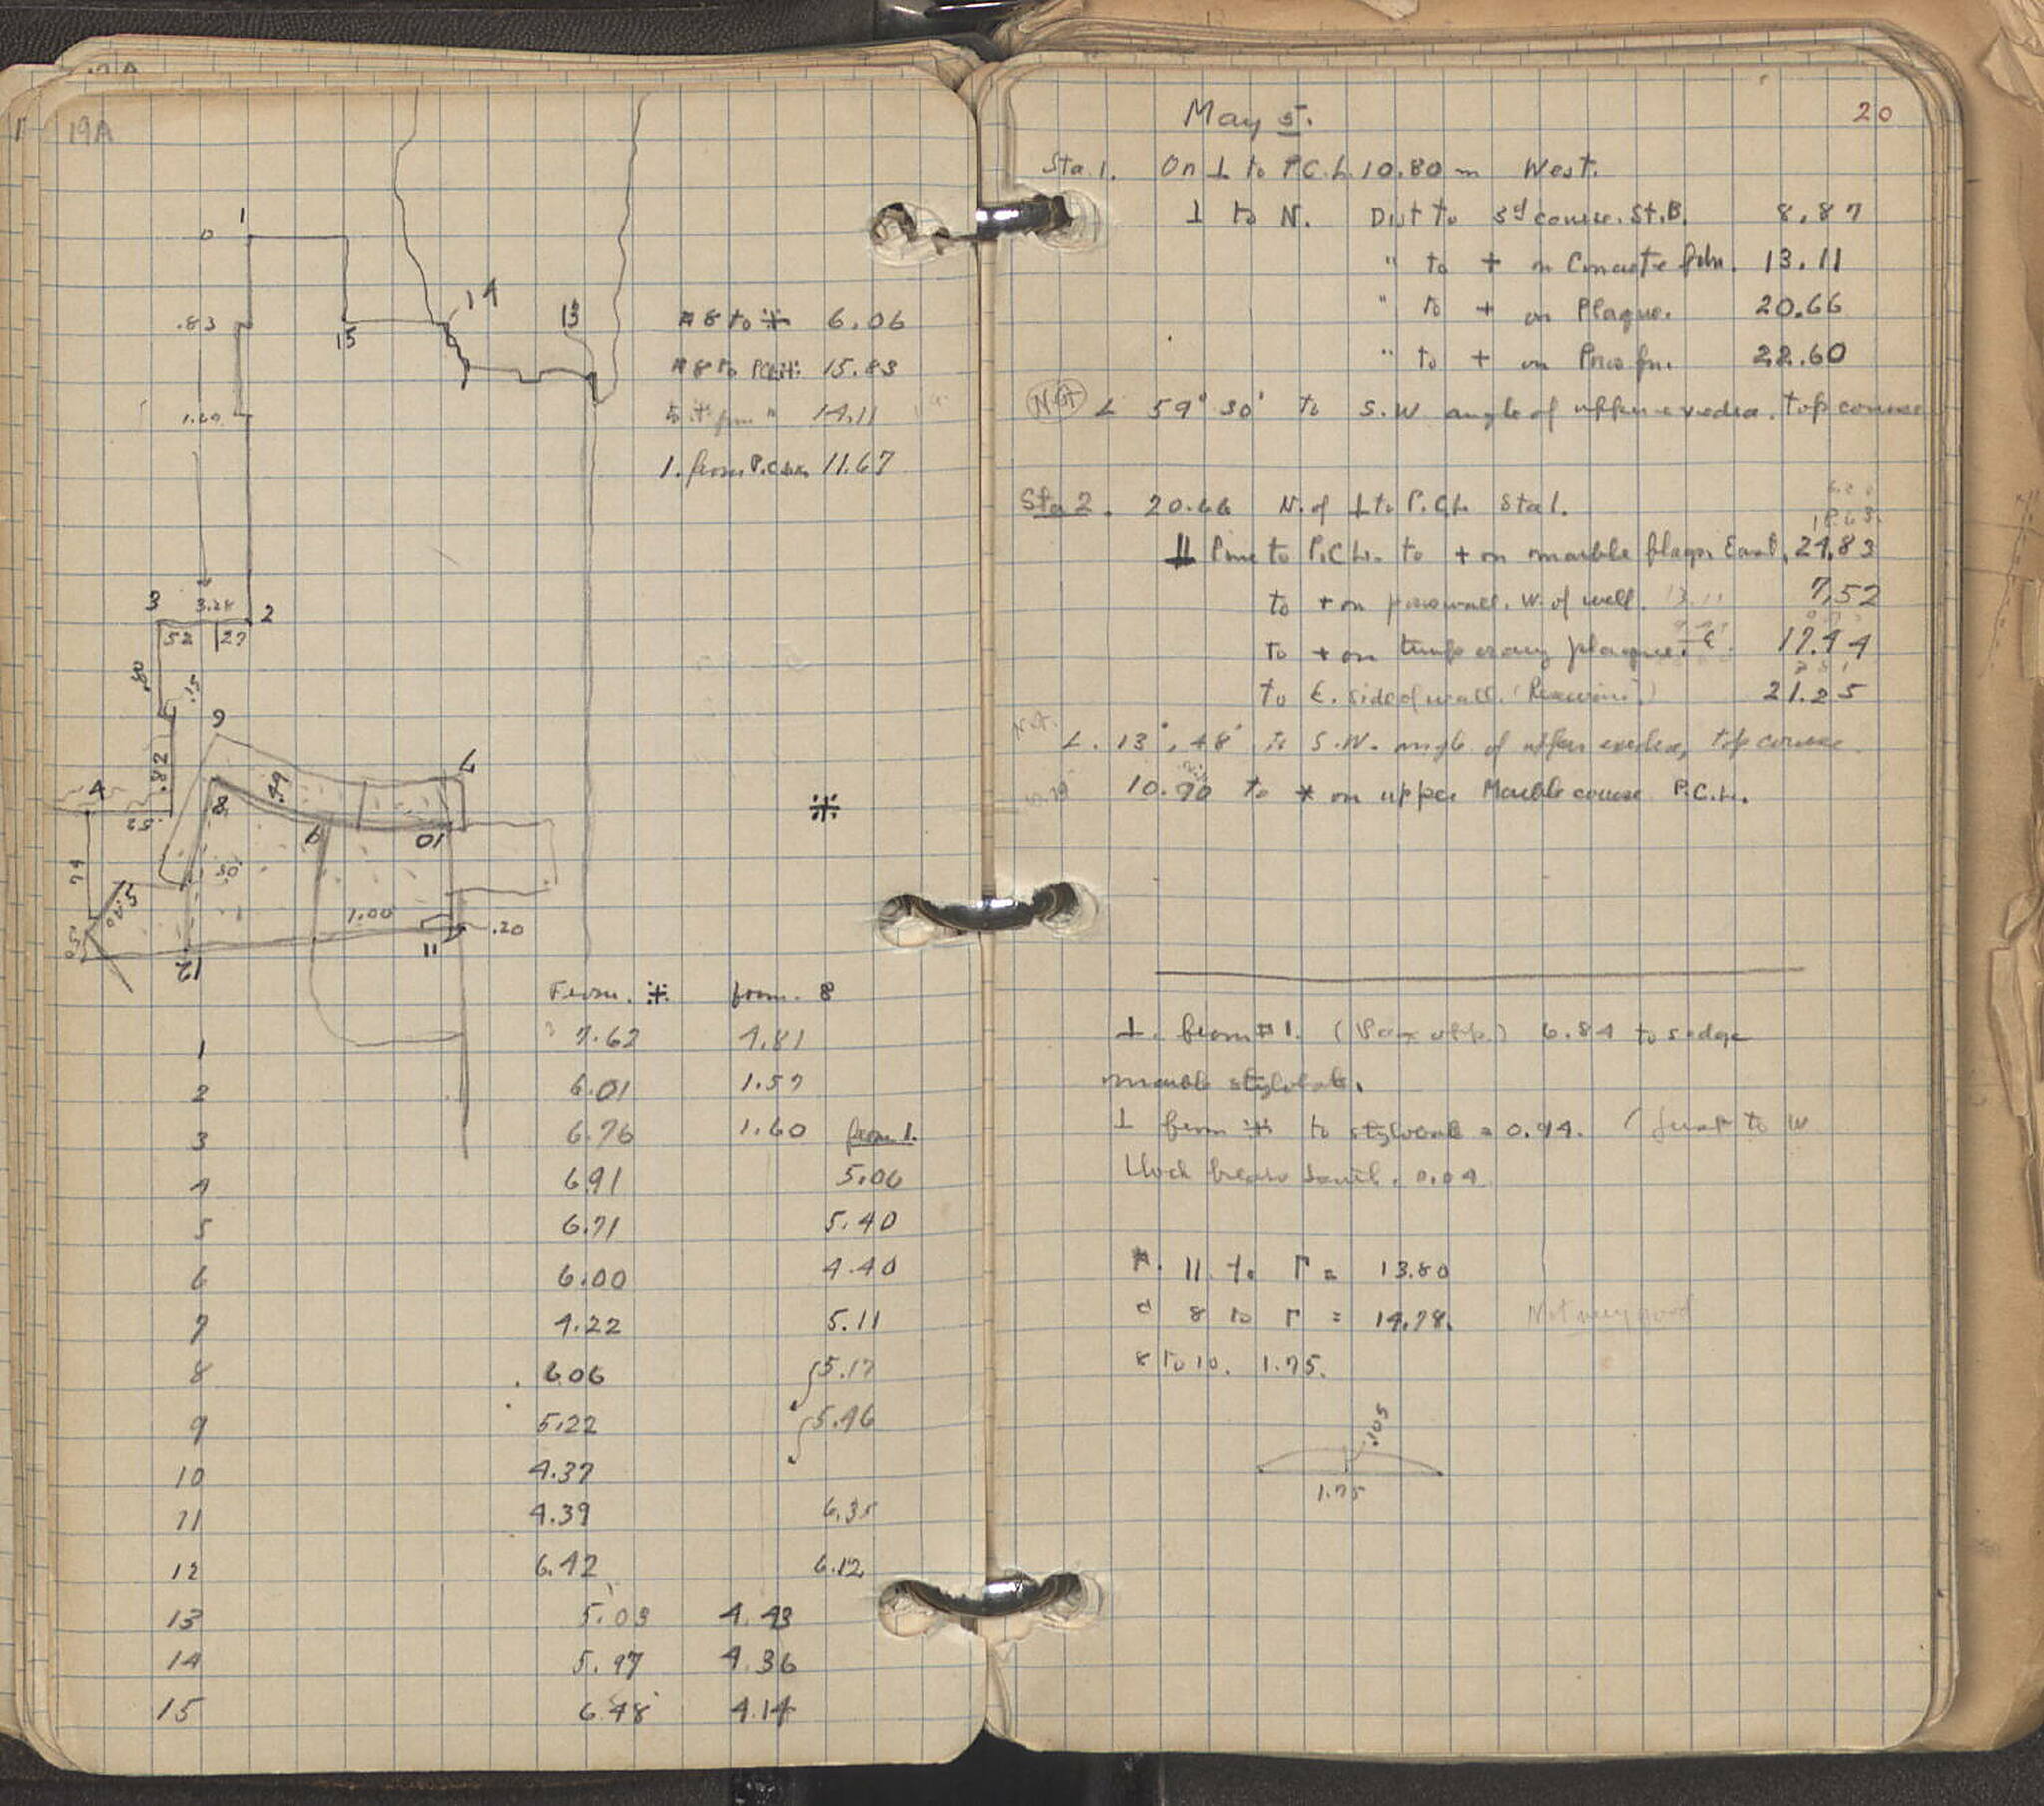 19A
1
0
14
13
.83
15
1.69
#8 to ※ 6.06
#8 to P.C.H. 15.83
14.11
1. from P.C.H. 11.67
3
3.28
2
52
27
.80
.15
9
.82
.49
7
4
8
※
10
.30
1.00
.20
11
12
From ※ from 8
1 7.62 4.81
2 6.01 1.57
3 6.76 1.60 from 1.
4 6.91 5.06
5 6.71 5.40
6 6.00 4.40
7 4.22 5.11
8 6.06 5.17
9 5.22 5.46
10 4.37
11 4.39 6.35
12 6.42 6.12
13 5.03 4.43
14 5.97 4.36
15 6.48 4.14
May 5.
20
Sta 1. On ⊥ to P.C.H. 10.80 m West.
⊥ to N. Dist to 3d course. St. B. 8.87
" to + on Concrete 13.11
" to + on Plaque. 20.66
" to + on 22.60
∠ 59° 30' to S.W angle of upper exedra. top course
Sta 2. 20.66 N. of ⊥ to P.C.H. Sta 1.
to P.C.H. to + on marble East. 24.83
to + on W. of well. 13.11 7.52
to + on temporary plaque. E. 17.44
to E. side of wall. 21.25
∠. 13°, 48' to S.W. angle of upper exedra, top course
10.90 to * on upper Marble course P.C.H.
⊥. from #1. 6.84 to s edge
marble stylobate.
⊥ from ※ to stylobate = 0.94. (just to W
block south. 0.04
#. 11. to Γ = 13.80
" 8 to Γ = 14.78. Not very good
8 to 10. 1.75.
.105
1.75